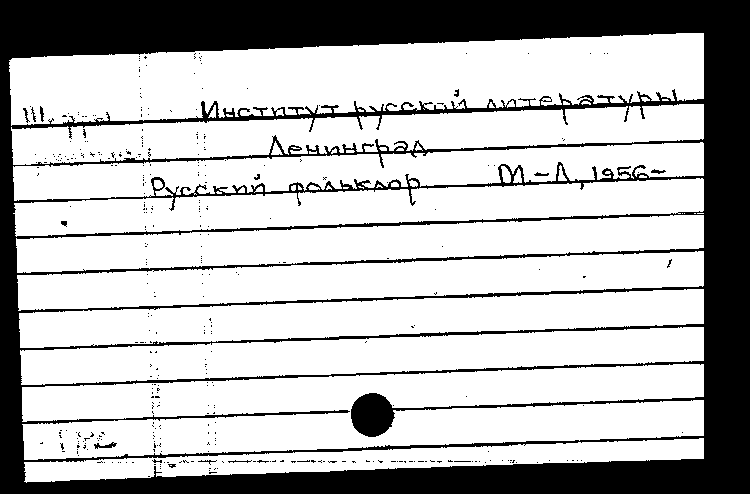 Институт русской литературы
Ленинград
Русский фольклор М.-Л., 1956-